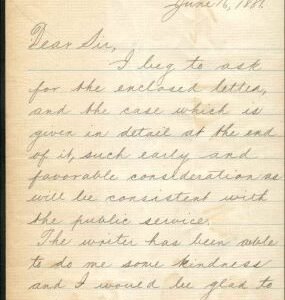 June 16, 1886
Dear Sir,
I beg to ask
for the enclosed letter,
and the case which is
given in detail at the end
of it, such early and
favorable consideration as
will be consistent with
the public service.
The writer has been able
to do me some kindness
and I would be glad to